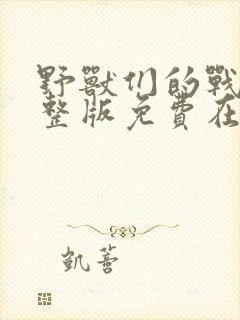 野獸们的戰
整版免費在
凱薈